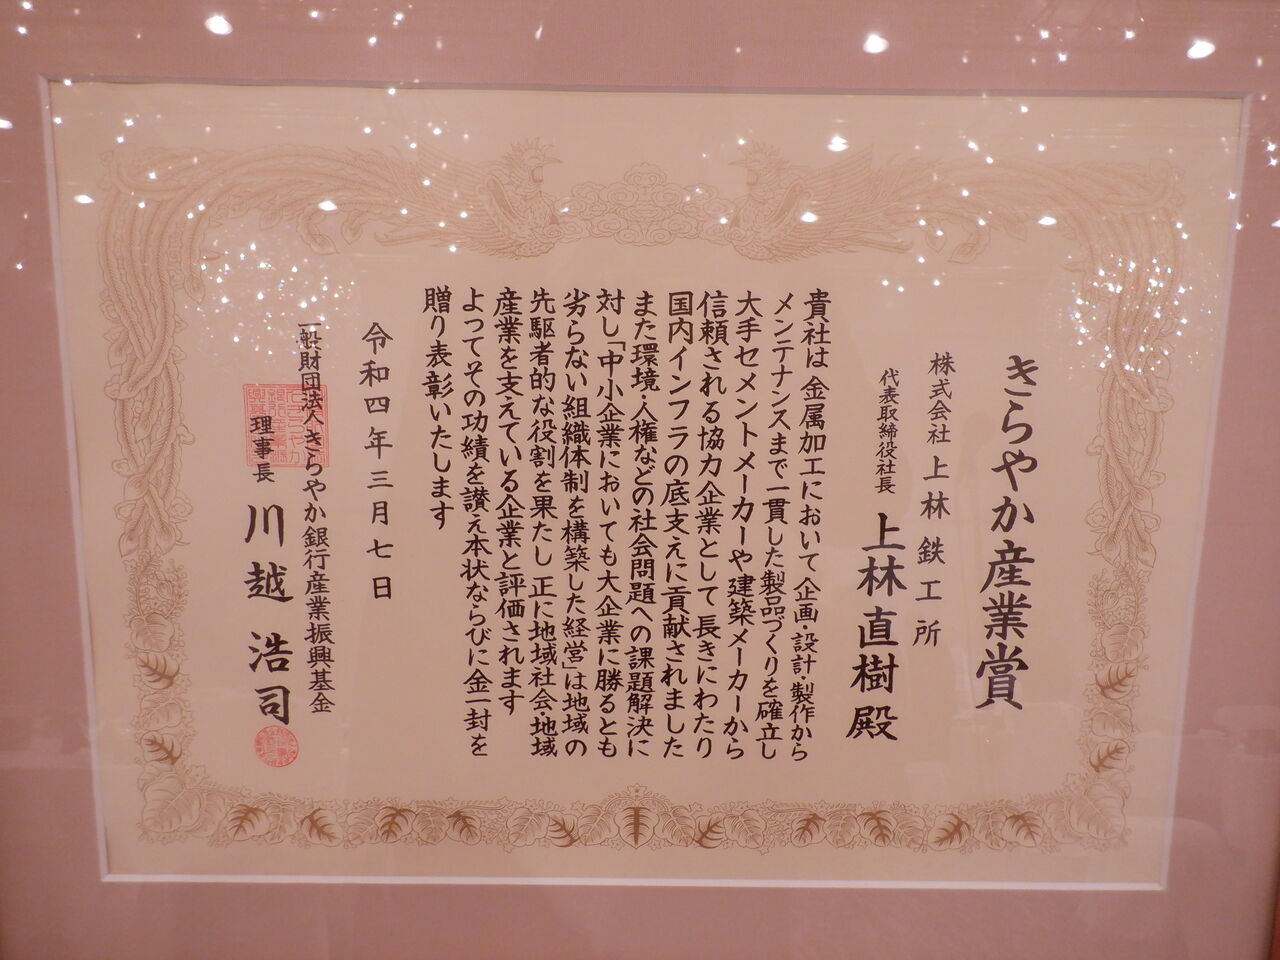 きらやか産業賞
株式会社 上林鉄工所
代表取締役社長 上林直樹殿
貴社は金属加工において企画・設計・製作から
メンテナンスまで一貫した製品づくりを確立し
大手セメントメーカーや建築メーカーから
信頼される協力企業として長きにわたり
国内インフラの底支えに貢献されました
また環境・人権などの社会問題への課題解決に
対し「中小企業においても大企業に勝るとも
劣らない組織体制を構築した経営」は地域の
先駆者的な役割を果たし正に地域社会地域
産業を支えている企業と評価されます
よってその功績を讃え本状ならびに金一封を
贈り表彰いたします
令和四年三月七日
一般財団法人きらやか銀行産業振興基金
理事長 川越浩司